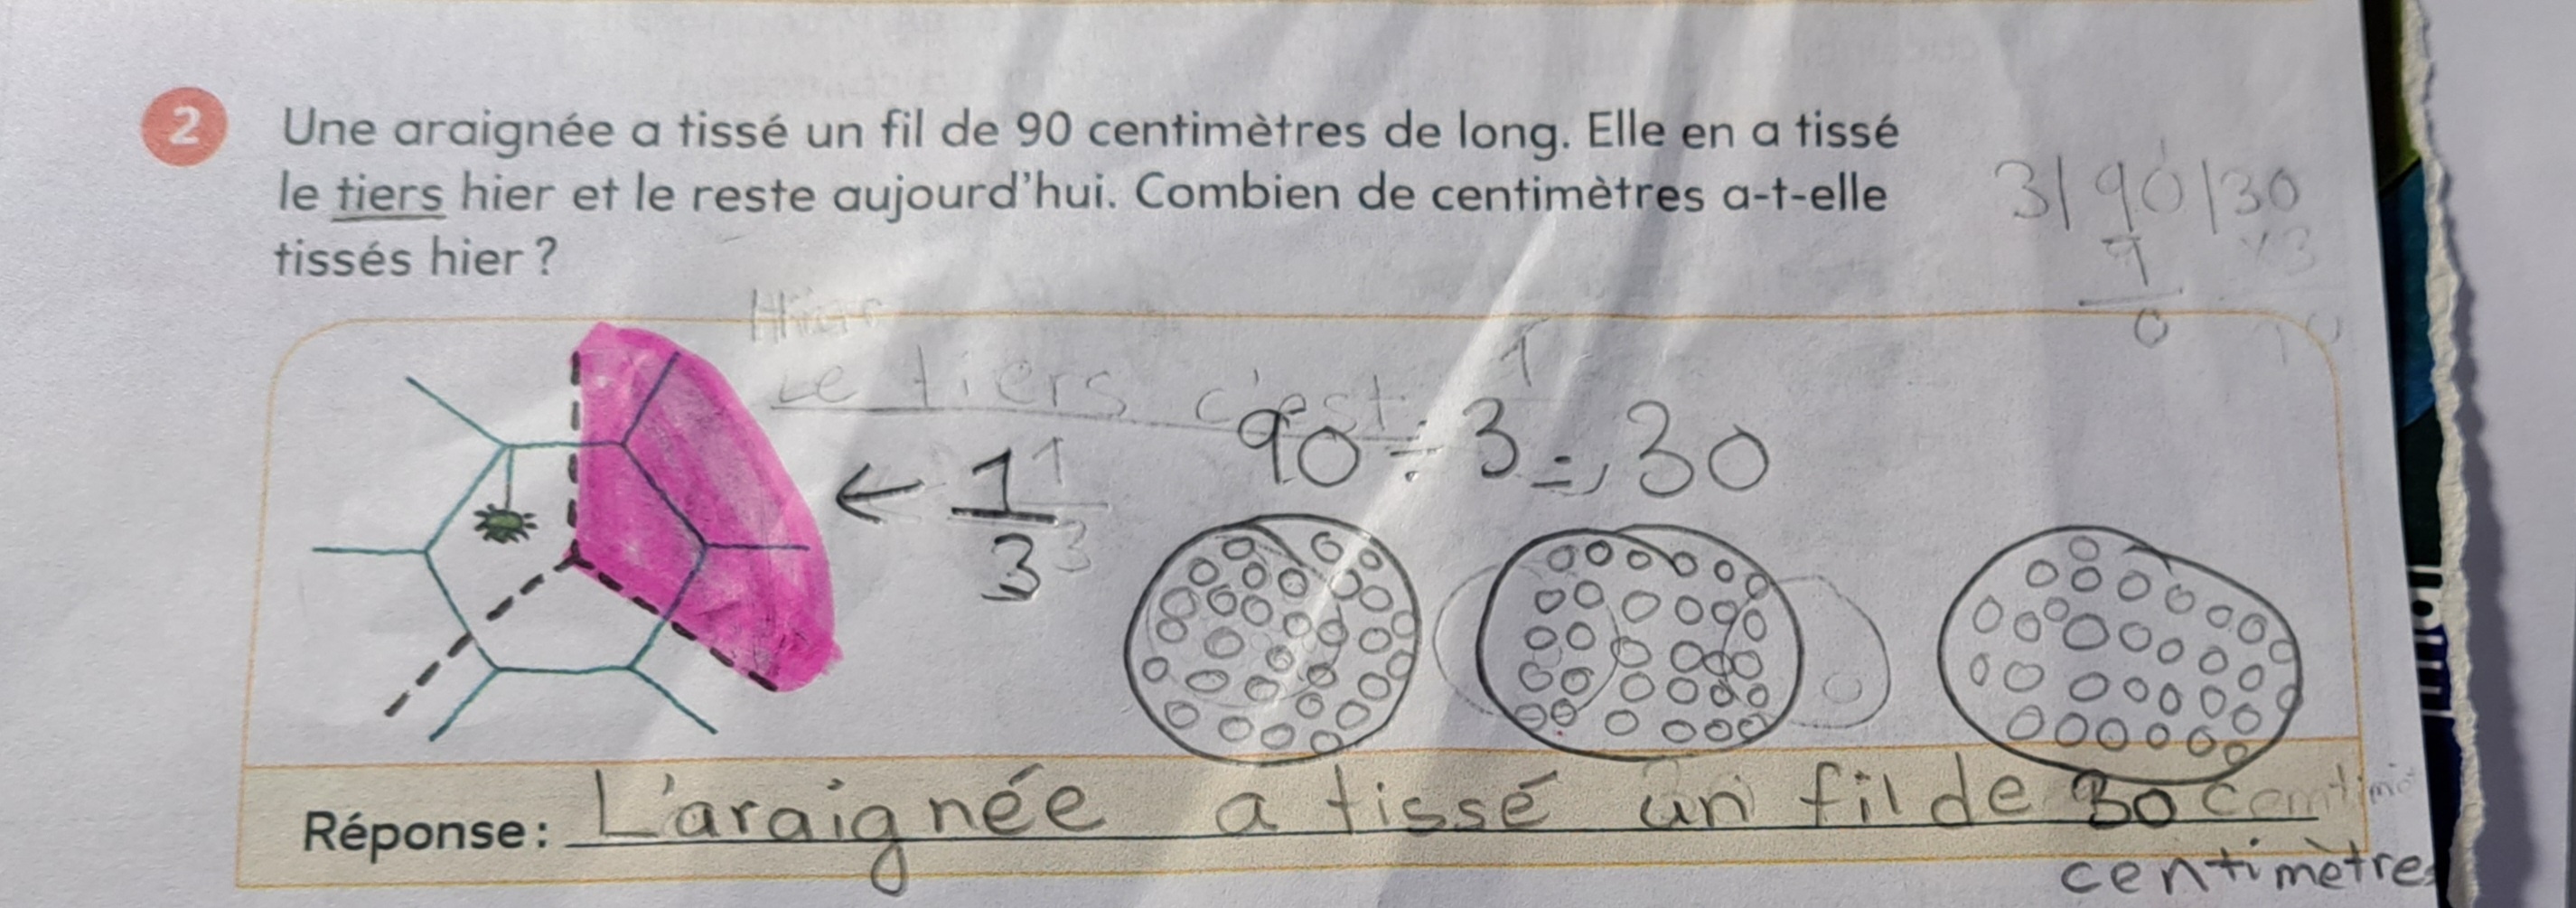 2 Une araignée a tissé un fil de 90 centimètres de long. Elle en a tissé
le tiers hier et le reste aujourd'hui. Combien de centimètres a-t-elle
tissés hier ?
3|90|30
9
x3
0
Hier
Le tiers c'est
1
90÷3=30
← 1 1
3 3
Réponse : L'araignée a tissé un fil de 30
centimètres